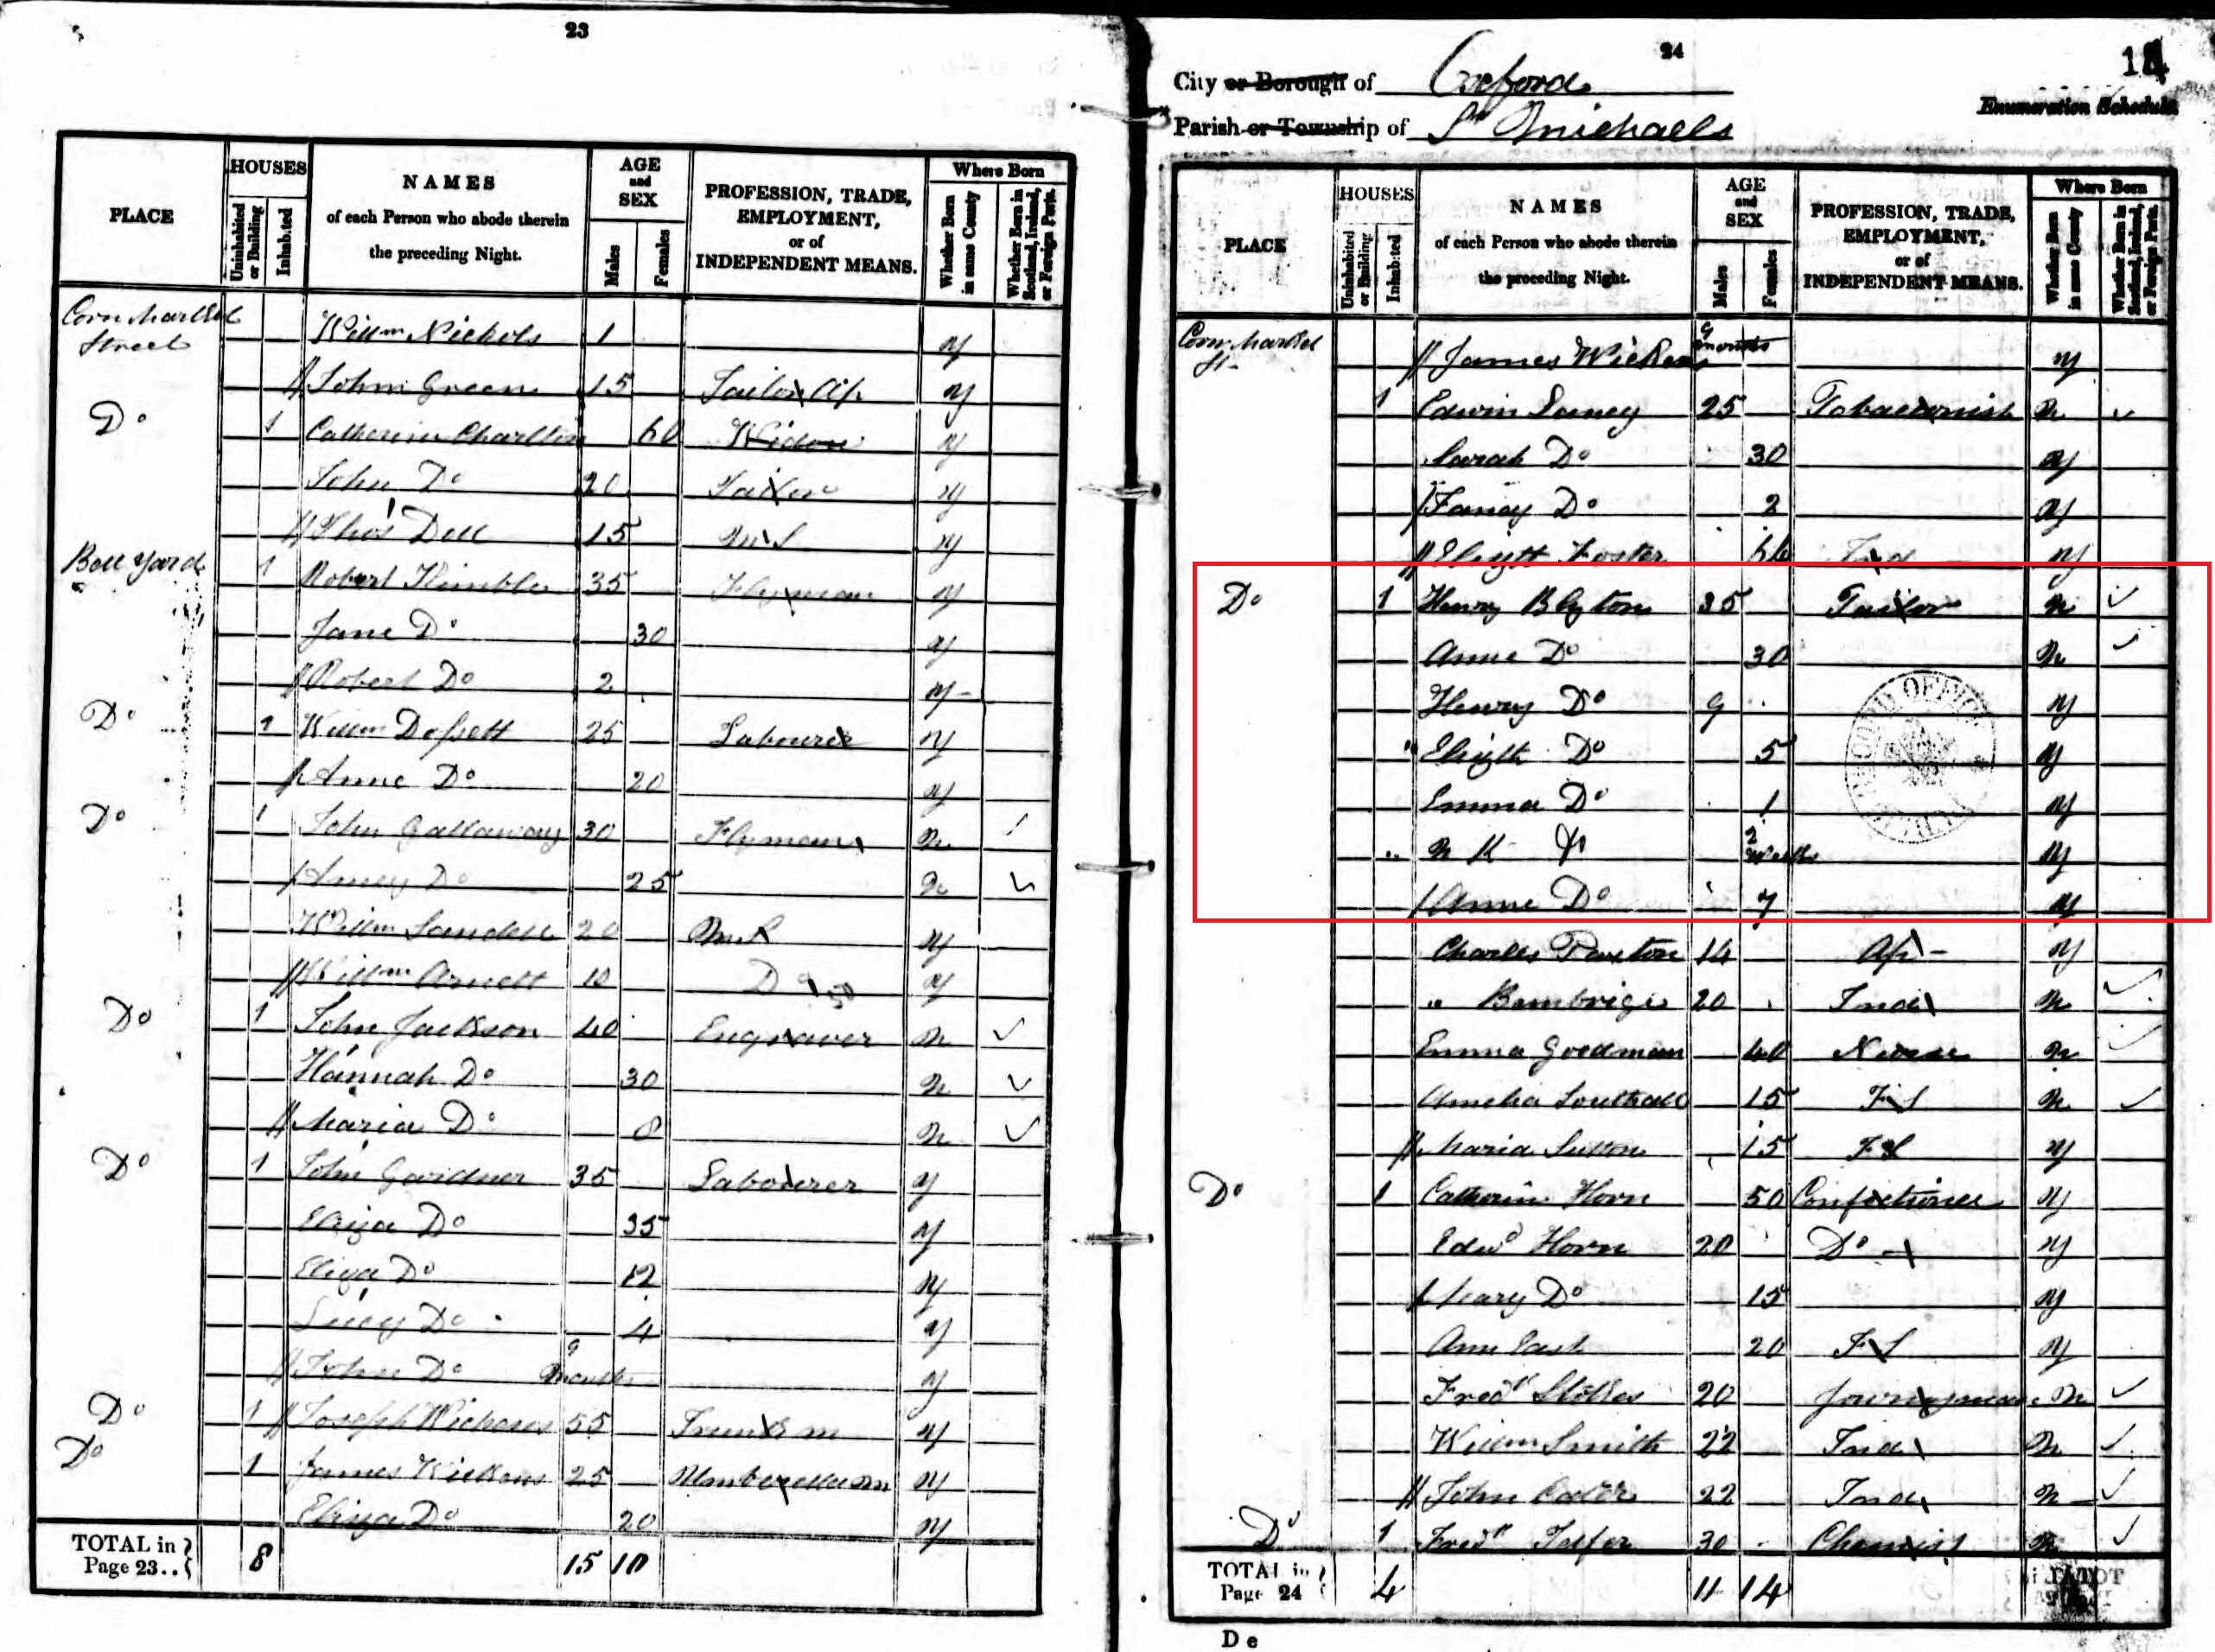 23
PLACE
HOUSES
Uninhabited or Building
Inhabited
NAMES
of each Person who abode therein
the preceding Night.
AGE
and
SEX
Males
Females
PROFESSION, TRADE,
EMPLOYMENT,
or of
INDEPENDENT MEANS.
Where Born
Whether Born in same County
Whether Born in Scotland, Ireland, or Foreign Parts.
Corn Market Street Willm Nichols 1 y
John Green 15 Tailor Ap y
Do 1 Catherin Charlton 60 Widow y
John Do 20 Tailor y
Thos Dell 15 M S y
Bell Yard 1 Robert Kimble 35 Flyman y
Jane Do 30 y
Robert Do 2 y
Do 1 Willm Dossett 25 Labourer y
Anne Do 20 y
Do 1 John Gallaway 30 Flyman n
Amey Do 25 n
Willm 20 M S y
Willm Arnett y
Do 1 John Jackson 40 Engraver n
Hannah Do 30 n
Maria Do 8 n
Do 1 John Gardner 35 Labourer y
Eliza Do 35 y
Eliza Do 12 y
Lucy Do 4 y
John Do 9 months y
Do 1 Joseph Wickens 55 Trunk m y
Do 1 James Wickens 25 Umberella m y
Eliza Do 20 y
TOTAL in Page 23.. 8 15 10
24
City or Borough of Oxford
Enumeration Schedule
Parish or Township of St Michaels
PLACE
HOUSES
Uninhabited or Building
Inhabited
NAMES
of each Person who abode therein
the preceding Night.
AGE
and
SEX
Males
Females
PROFESSION, TRADE,
EMPLOYMENT,
or of
INDEPENDENT MEANS.
Where Born
Whether Born in same County
Whether Born in Scotland, Ireland, or Foreign Parts.
Corn Market St James Wickens 9 months y
1 Edwin 25 Tobacconist n
Sarah Do 30 y
Fanny Do 2 y
Elizth Foster Ind y
Do 1 Henry Blyton 35 Tailor n
Anne Do 30 n
Henry Do 9 y
Elizth Do 5 y
Emma Do 1 y
N K Do 2 weeks y
Anne Do 7 y
Charles Paxton 14 Ap y
" Bambrige 20 Ind n
Emma Goodman 40 Nurse n
Amelia Southall 15 F S n
Maria Sutton 15 F S y
Do 1 Catherin Horn 50 Confectioner y
Edwd Horn 20 Do y
Mary Do 15 y
Ann East 20 F S y
Fredk Stokes 20 Journeyman n
Willm Smith 22 Ind n
John 22 Ind n
Do 1 Fredk Telfer 30 Chemist n
TOTAL in Page 24 4 11 14
De